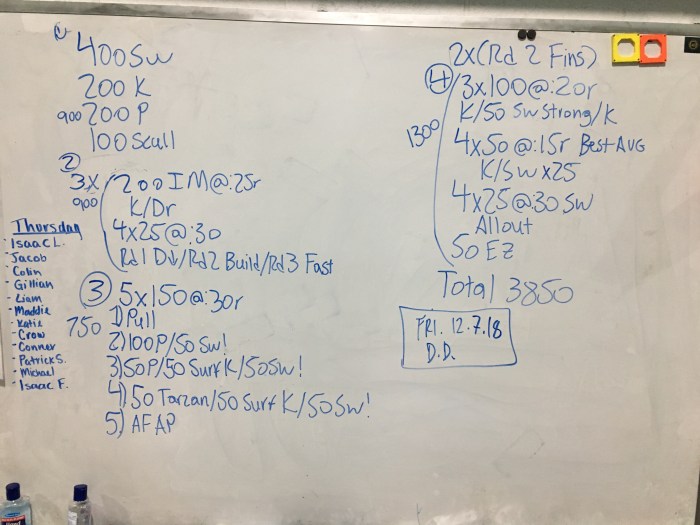 1)
400 Sw
200 K
900 200 P
100 Scull
2)
3x 200 IM@:25r
900 K/Dr
4x25@:30
Rd1 D↓/Rd2 Build/Rd3 Fast
3 5x150@:30r
750 1) Pull
2) 100P/50 Sw!
3) 50P/50 Surf K/50 Sw!
4) 50 Tarzan/50 Surf K/50 Sw!
5) AFAP
Thursday
- Isaac L.
- Jacob
- Colin
- Gillian
- Liam
- Maddie
- Katie
- Crow
- Conner
- Patrick S.
- Michael
- Isaac F.
2x (Rd 2 Fins)
4 3x100@:20r
K/50 Sw Strong/K
1300 4x50@:15r Best AVG
K/Sw x25
4x25@:30 Sw
All out
50 EZ
Total 3850
FRI. 12.7.18
D.D.